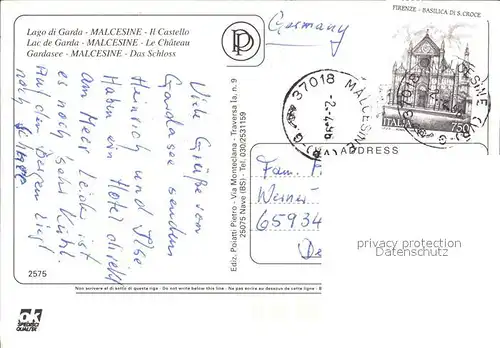 Lago di Garda - MALCESINE - Il Castello
Lac de Garda - MALCESINE - Le Château
Gardasee - MALCESINE - Das Schloss
Germany
FIRENZE - BASILICA DI S. CROCE
ITALIA 750
37018 MALCESINE
-2.4.96
37018
ADDRESS
Viele Grüße vom
Gardasee senden
Heinrich und Ilse
Haben ein Hotel direkt
am Meer Leider ist
es noch sehr kühl.
Auf den Bergen liegt
noch Schnee
Ediz. Poiatti Pietro - Via Monteclana - Traversa Ia, n. 9
25075 Nave (BS) - Tel. 030/2531159
Fam.
Werner
65934
privacy protection
Datenschutz
2575
Non scrivere al di sotto di questa riga - Do not write below this line - Ne pas écrire au dessous de cette ligne
OK
SPEDISCI
QUALITÀ